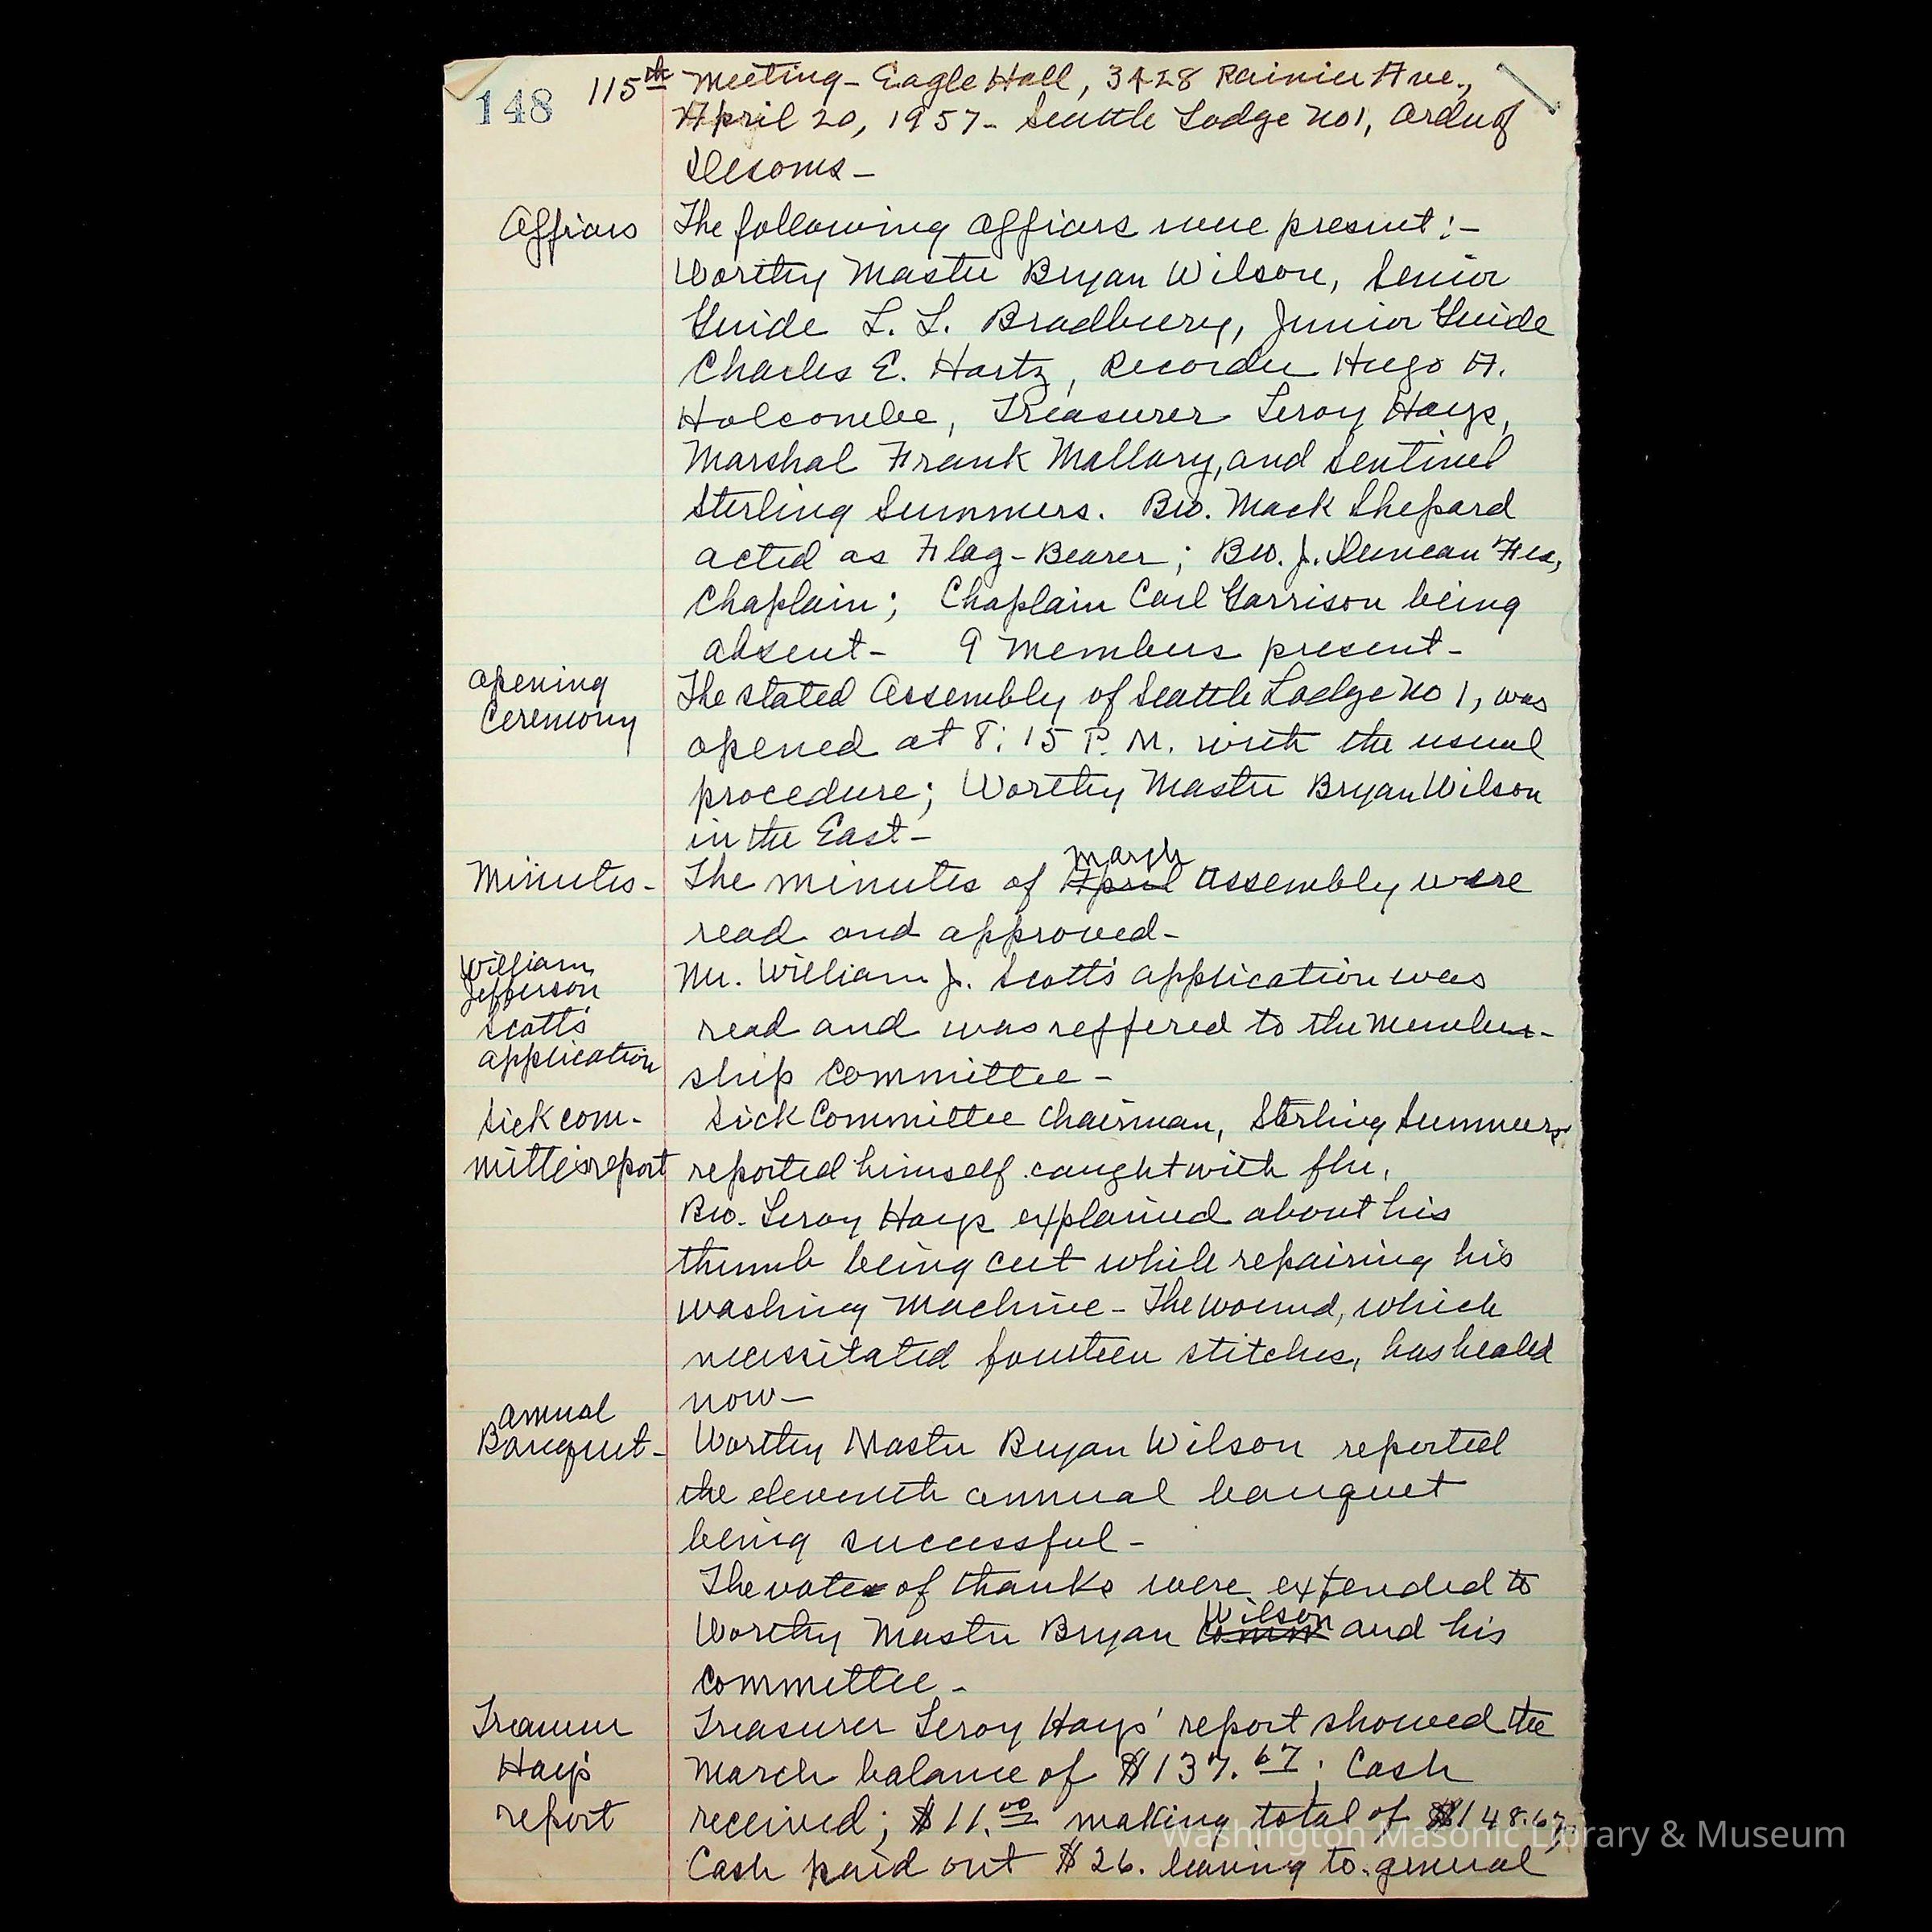 148
115th Meeting - Eagle Hall, 3428 Rainier Ave.,
April 20, 1957 - Seattle Lodge No 1, Order of
Desoms -
Officers
The following officers were present :-
Worthy Master Bryan Wilson, Senior
Guide L. L. Bradbury, Junior Guide
Charles E. Hartz, Recorder Hugo A.
Holcombe, Treasurer Leroy Hays,
Marshal Frank Mallory, and Sentinel
Sterling Summers. Bro. Mack Shepard
acted as Flag-Bearer; Bro. J. Duncan
Chaplain; Chaplain Carl Garrison being
absent - 9 members present -
Opening
Ceremony
The stated Assembly of Seattle Lodge No 1, was
opened at 8:15 P.M. with the usual
procedure; Worthy Master Bryan Wilson
in the East -
Minutes -
march
The minutes of April Assembly were
read and approved -
William
Jefferson
Scott's
application
Mr. William J. Scott's application was
read and was reffered to the Member-
ship Committee -
Sick com-
mittee's report
Sick Committee Chairman, Sterling Summers
reported himself caught with flu.
Bro. Leroy Hays explained about his
thumb being cut while repairing his
washing machine - The wound, which
necessitated fourteen stitches, has healed
now -
Annual
Banquet -
Worthy Master Bryan Wilson reported
the eleventh annual banquet
being successful -
The vote of thanks were extended to
Wilson
Worthy Master Bryan and his
Committee -
Treasurer
Hays'
report
Treasurer Leroy Hays' report showed the
March balance of $137.67; Cash
received; $11.00 making total of $148.67.
Cash paid out $26. leaving to general
Washington Masonic Library & Museum